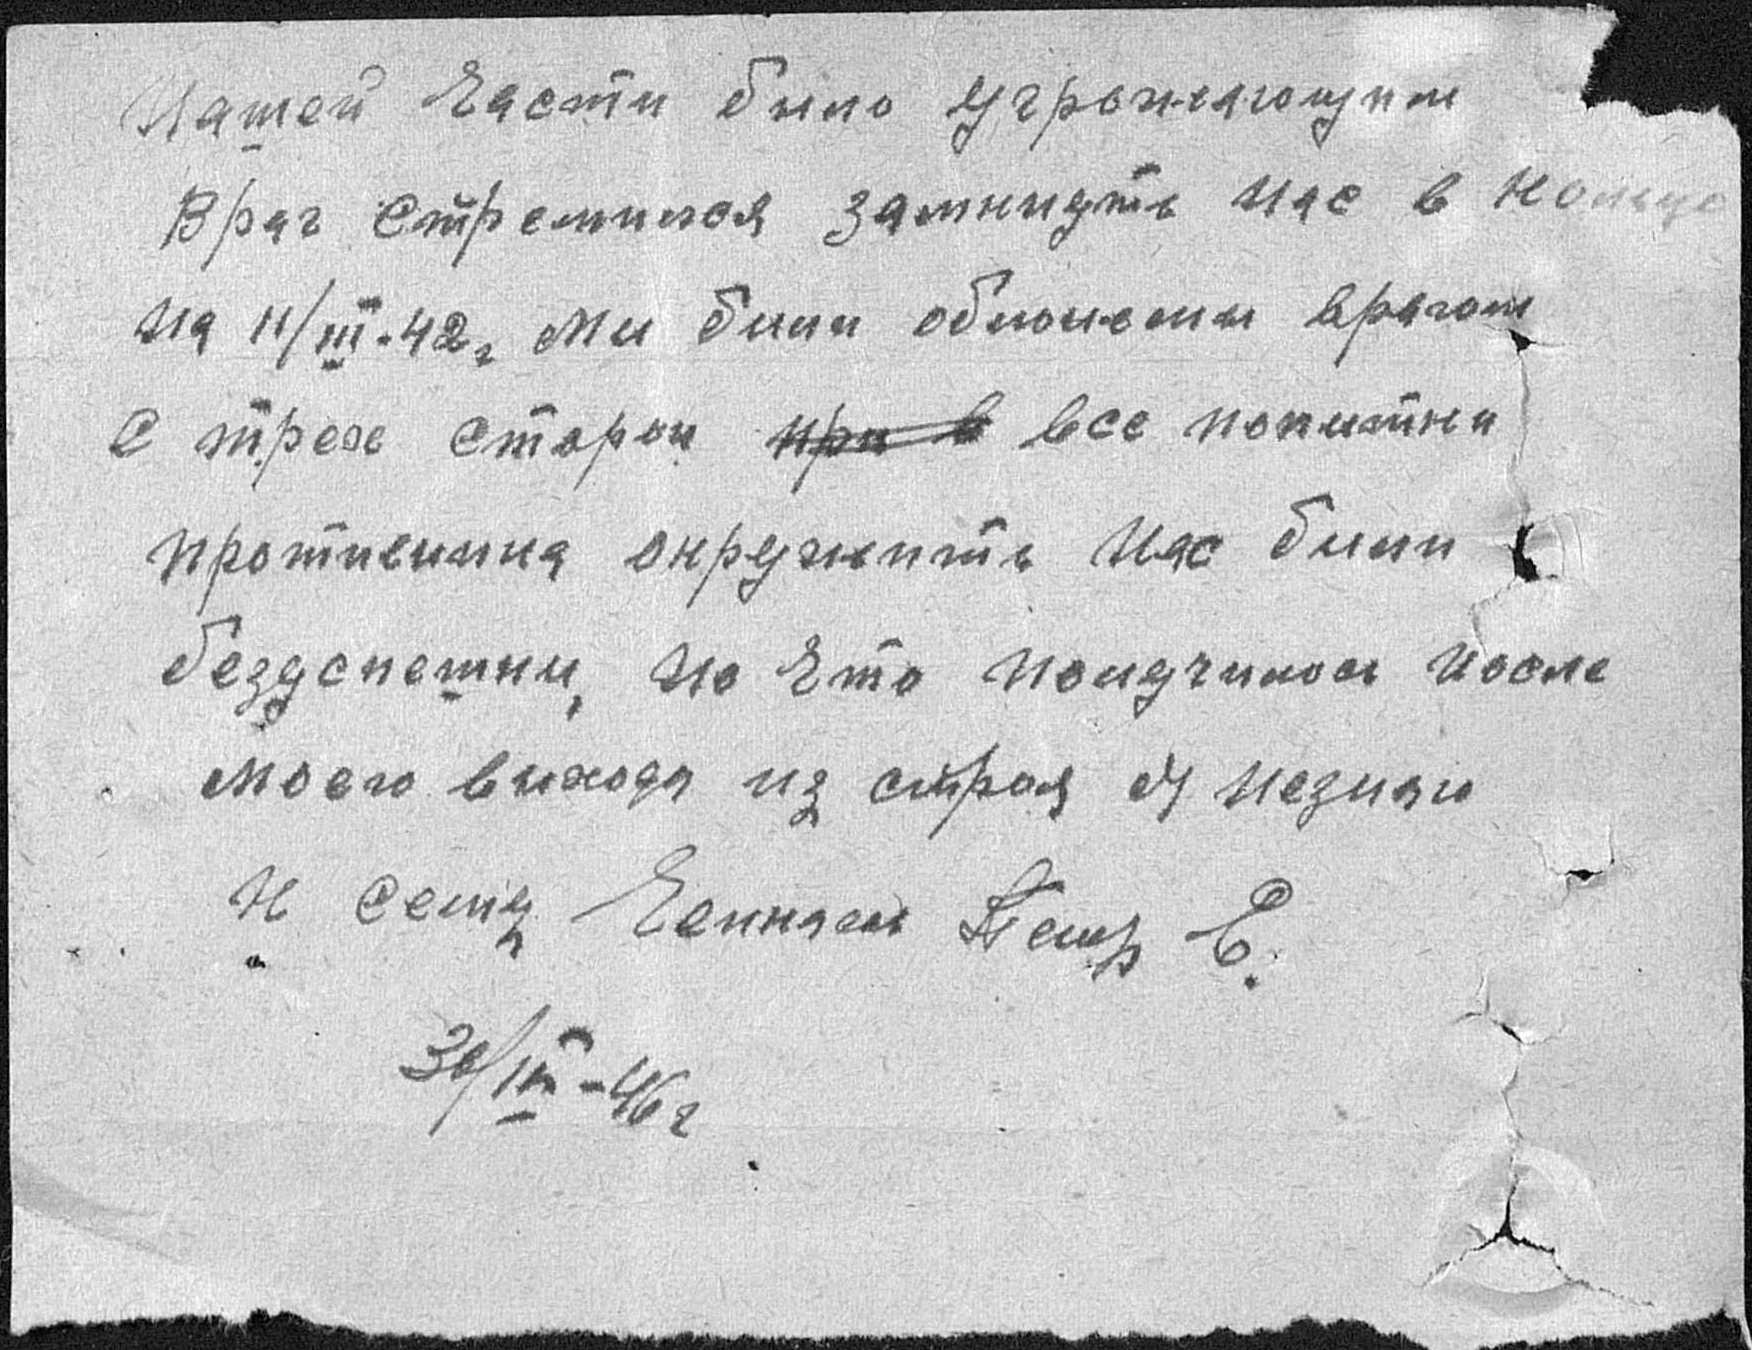 Нашей части было угрожающим
Враг стремился замкнуть нас в кольцо
На 11/III-42г Ми били обложены врагом
с трех сторон при в все попитки
противника окружить нас били
безуспешни, но что получилось после
моего выхода из строя Я незнаю
К сему Петр Е.
30/III-46г